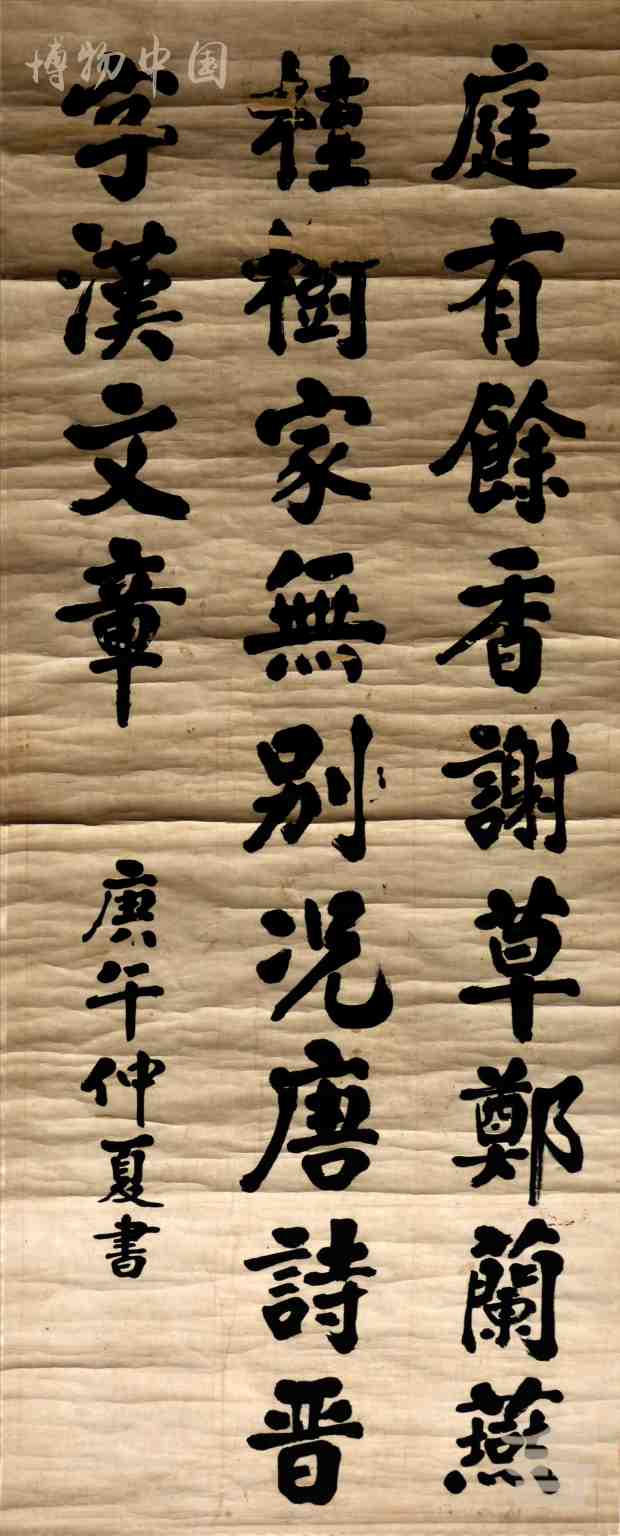 庭有餘香謝草鄭蘭燕
桂樹家無別況唐詩晉
字漢文章
庚午仲夏書
博物中国